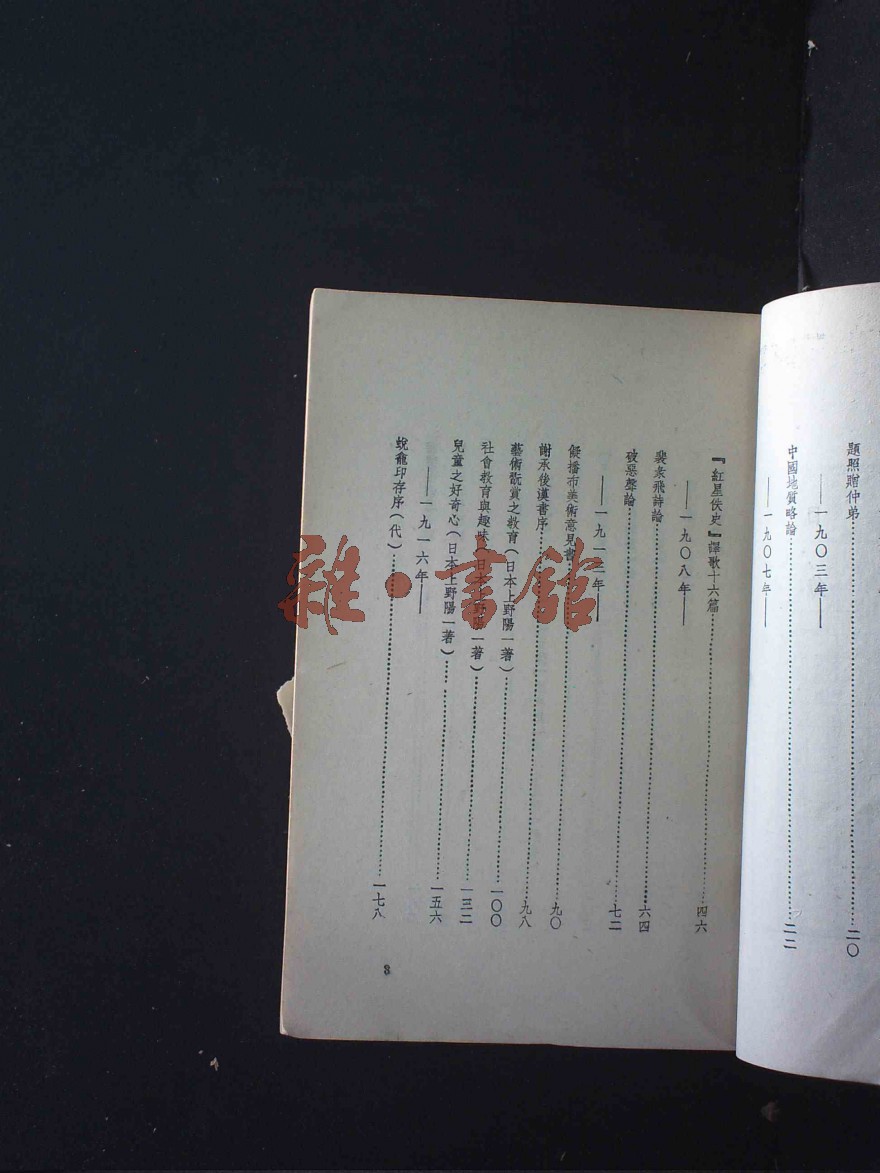 題照贈仲弟……二〇
——一九〇三年——
中國地質略論……二二
——一九〇七年——
『紅星佚史』譯歌十六篇……四六
——一九〇八年——
裴彖飛詩論……六四
破惡聲論……七二
——一九一三年——
儗播布美術意見書……九〇
謝承後漢書序……九八
藝術翫賞之教育(日本上野陽一著)……一〇〇
社會教育與趣味(日本上野陽一著)……一三二
兒童之好奇心(日本上野陽一著)……一五六
——一九一六年——
蛻龕印存序(代)……一七八
3
雜·書館